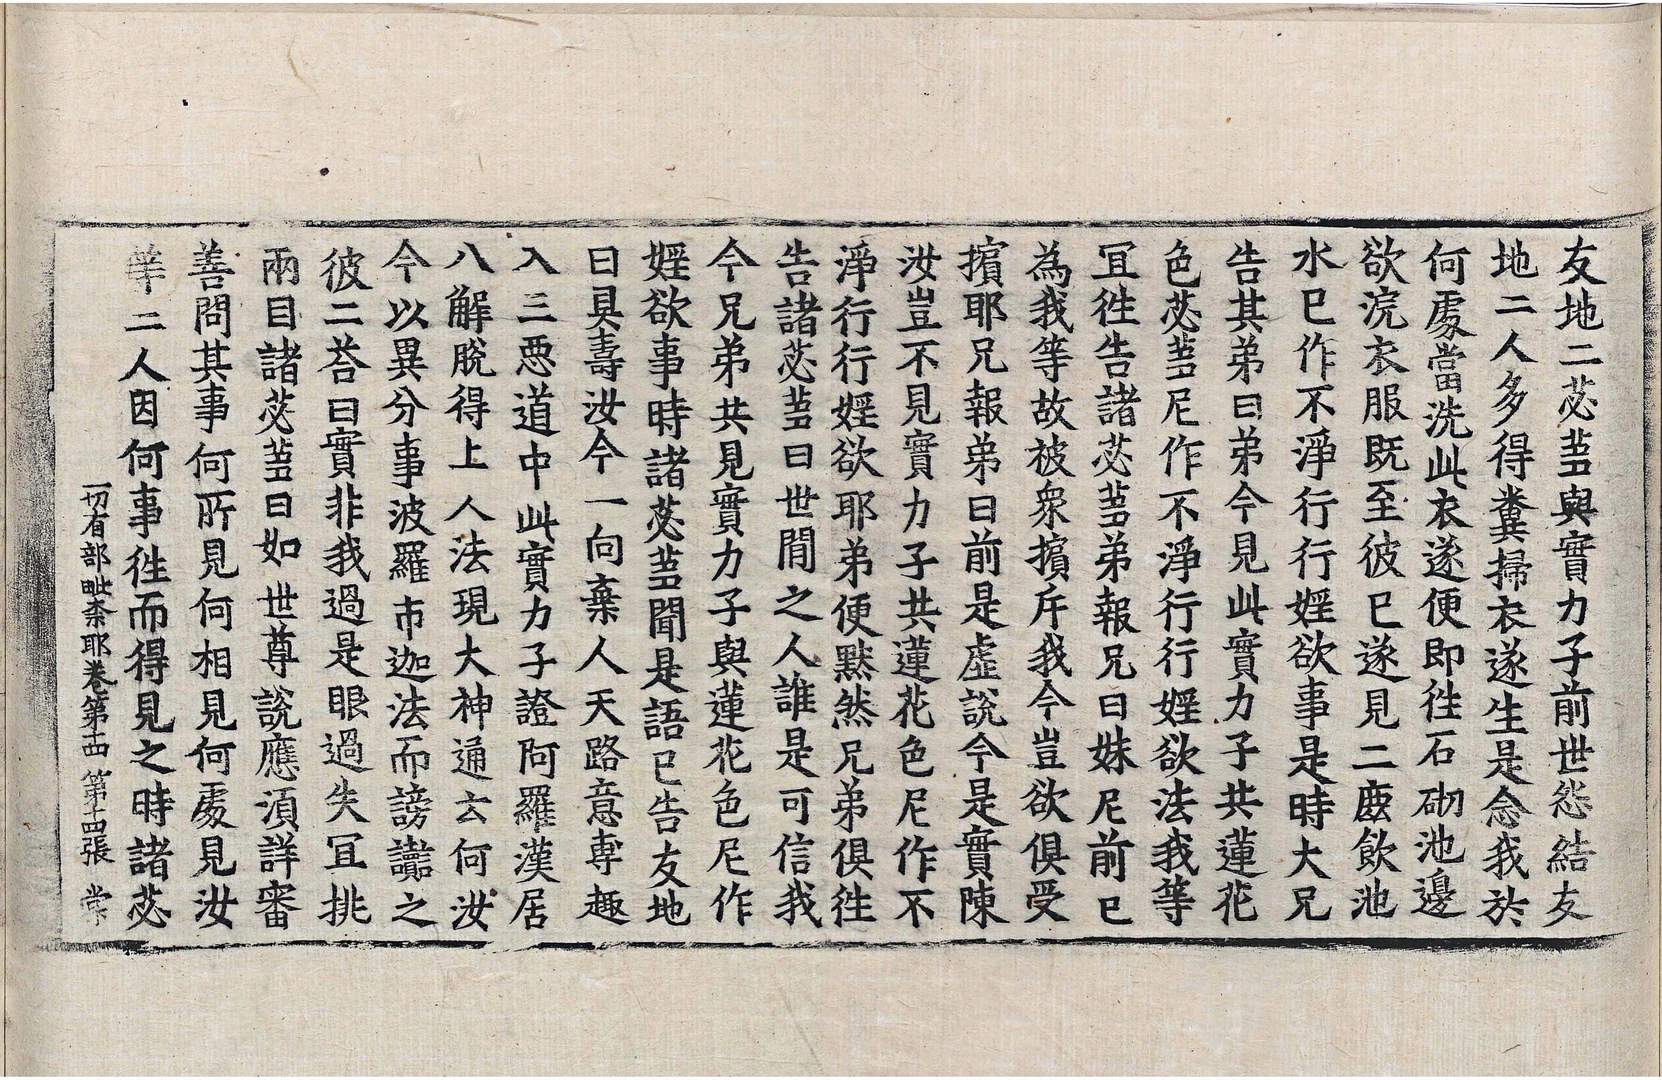 友地二苾蒭與實力子前世怨結友
地二人多得糞掃衣遂生是念我於
何處當洗此衣遂便即徃石砌池邊
欲浣衣服既至彼已遂見二鹿飲池
水已作不淨行行婬欲事是時大兄
告其弟曰弟今見此實力子共蓮花
色苾蒭尼作不淨行行婬欲法我等
冝徃告諸苾蒭弟報兄曰妹尼前已
為我等故被衆擯斥我今豈欲俱受
擯耶兄報弟曰前是虛說今是實陳
汝豈不見實力子共蓮花色尼作不
淨行行婬欲耶弟便黙然兄弟俱徃
告諸苾蒭曰世間之人誰是可信我
今兄弟共見實力子與蓮花色尼作
婬欲事時諸苾蒭聞是語已告友地
曰具壽汝今一向棄人天路意專趣
入三惡道中此實力子證阿羅漢居
八解脫得上人法現大神通云何汝
今以異分事波羅市迦法而謗讟之
彼二荅曰實非我過是眼過失冝挑
兩目諸苾蒭曰如世尊說應湏詳審
善問其事何所見何相見何處見汝
等二人因何事徃而得見之時諸苾
一切有部毗柰耶卷第十四 第十四張 棠